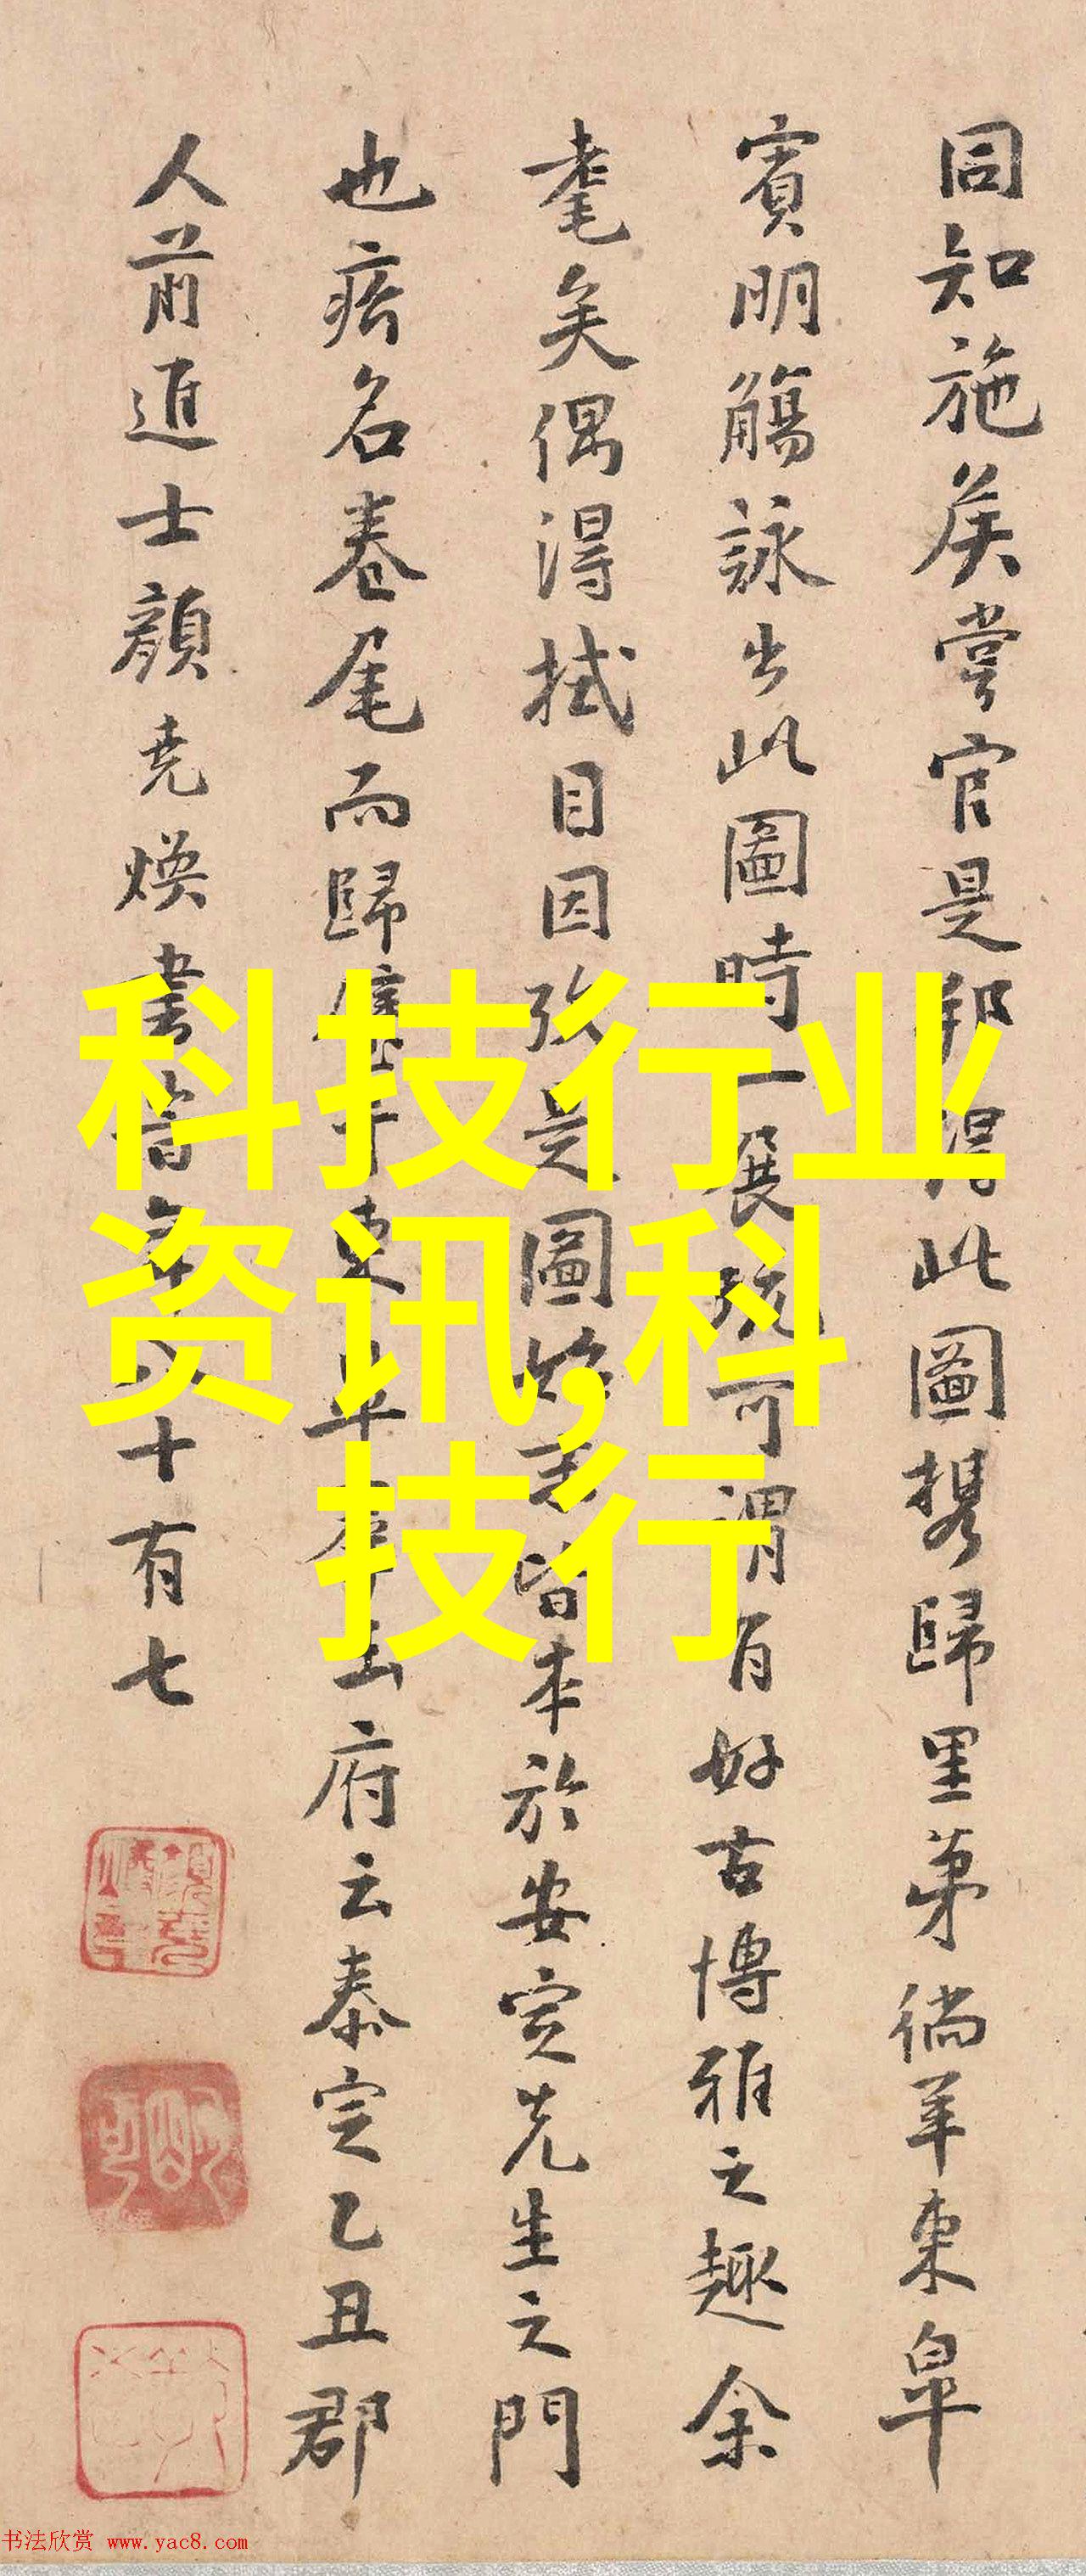 同知施侯嘗官是邦得此圖携歸里第徜羊東皐
賓明觴詠出此圖時一展玩可謂有好古博雅之趣余
耄矣偶得拭目因
是圖
皆本於安定先生之門
也
名卷尾而歸
于東
府云泰定乙丑郡
人前進士顔堯煥書
十有七
科技行业
资讯,科
技行
书法欣赏 www.yac8.com